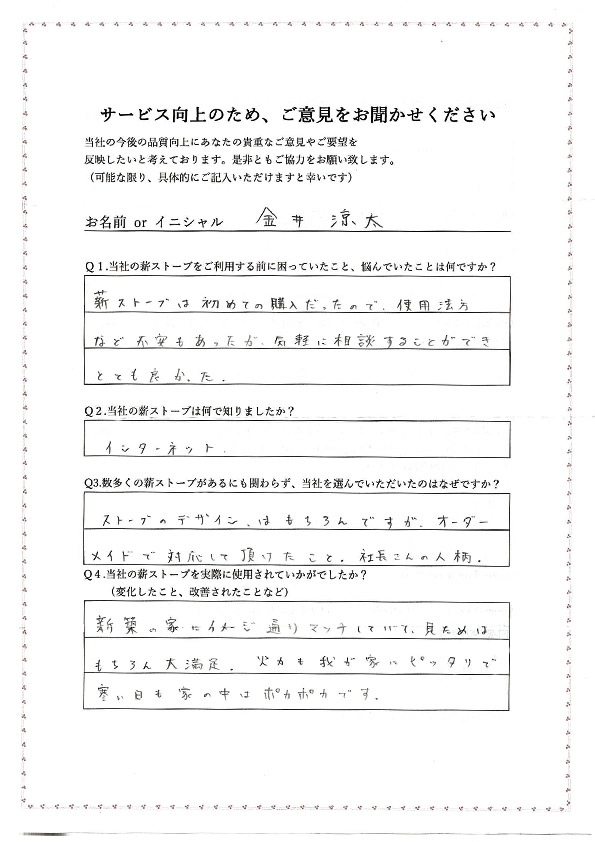 サービス向上のため、ご意見をお聞かせください
当社の今後の品質向上にあなたの貴重なご意見やご要望を
反映したいと考えております。是非ともご協力をお願い致します。
（可能な限り、具体的にご記入いただけますと幸いです）
お名前 or イニシャル 金井 涼太
Q1.当社の薪ストーブをご利用する前に困っていたこと、悩んでいたことは何ですか？
薪ストーブは初めての購入だったので、使用法方
など不安もあったが、気軽に相談することができ
とても良かった.
Q2.当社の薪ストーブは何で知りましたか？
インターネット.
Q3.数多くの薪ストーブがあるにも関わらず、当社を選んでいただいたのはなぜですか？
ストーブのデザイン、はもちろんですが、オーダー
メイドで対応して頂けたこと。社長さんの人柄.
Q4.当社の薪ストーブを実際に使用されていかがでしたか？
（変化したこと、改善されたことなど）
新築の家にイメージ通りマッチしていて、見ためは
もちろん大満足. 火力も我が家にピッタリで
寒い日も家の中はポカポカです.